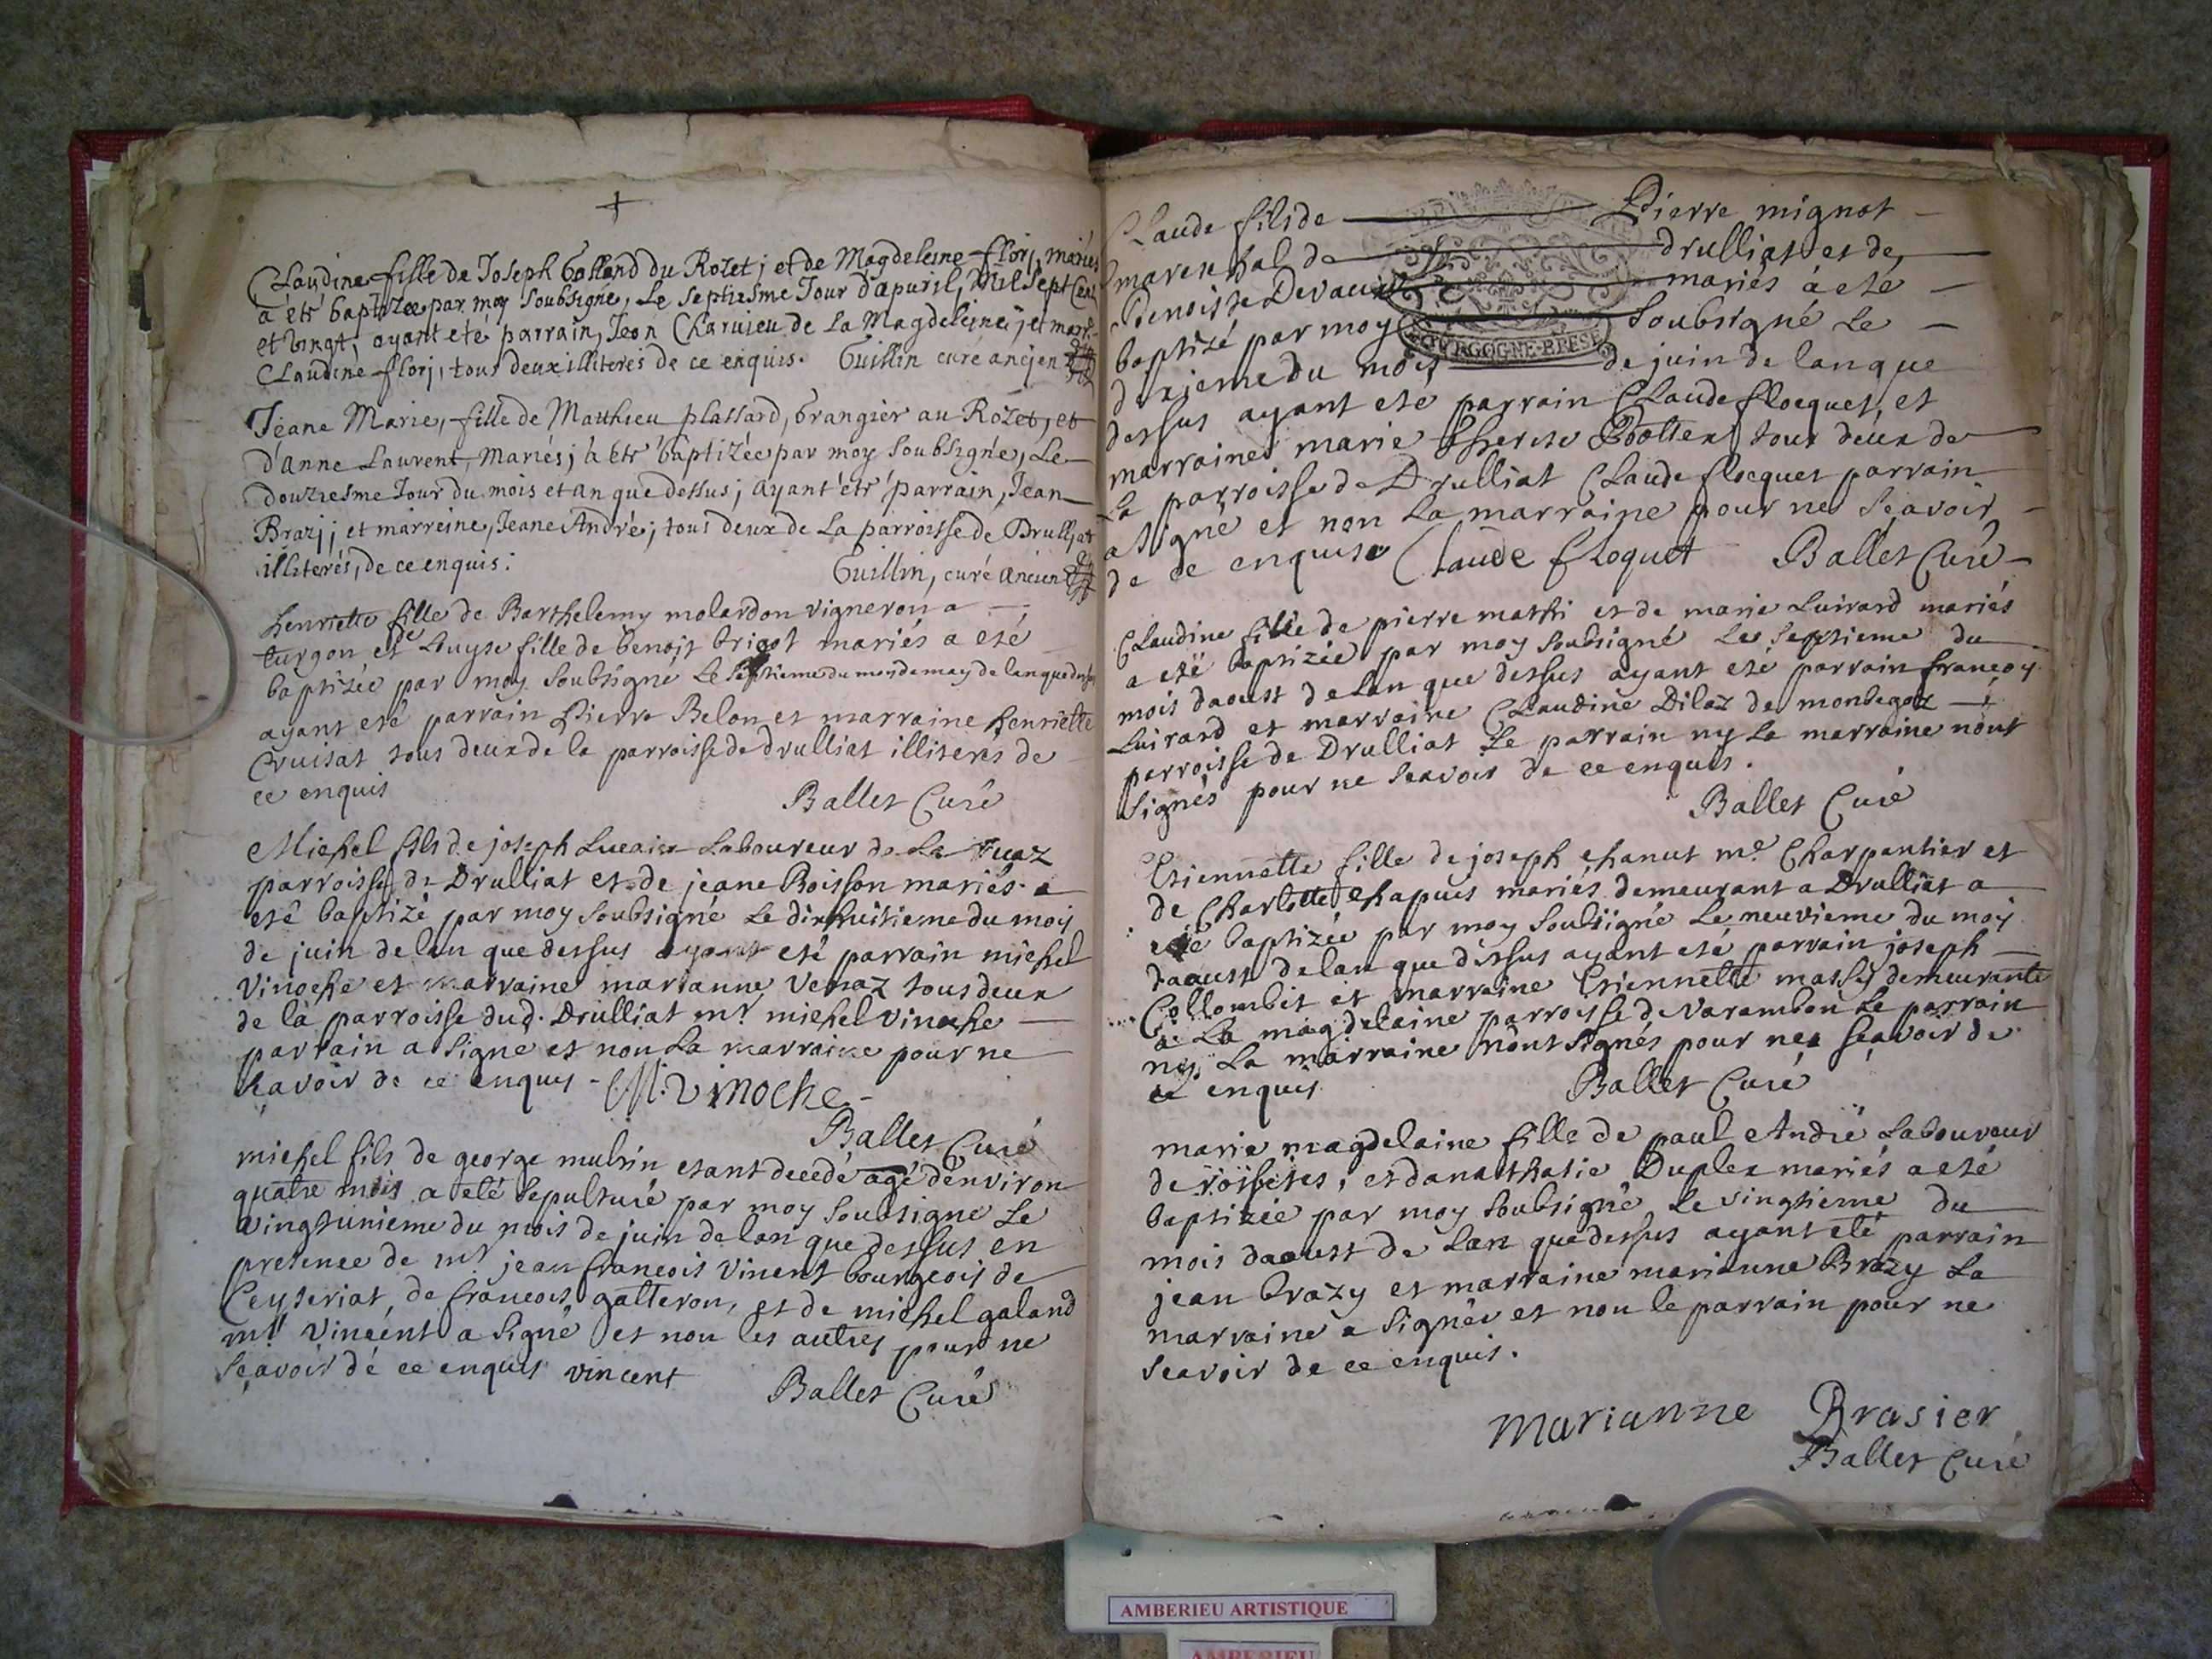 +
Claudine fille de Joseph Golland du Rozet; et de Magdeleine florj, mariés
a étr baptizée par moy soubsigné, Le septiesme Jour d'apuril, Mil Sept Cent
et vingt, ayant eté parrain, Jean Charuieu de La Magdeleine; et marr.
Claudine florj, tous deux illiterés de ce enquis. Guillin curé ancjen
Jeane Marie, fille de Mathieu plassard, Grangier au Rozet, et
d'Anne Laurent, Mariés; à étr baptizée par moy soubsigné, Le
douziesme Jour du mois et an que dessus; ayant étr parrain, Jean
Brazj; et marreine, Jeane André; tous deux de La parroisse de Drulljat
illiterés, de ce enquis: Guillin, curé ancien
henriette fille de Barthelemy molardon vigneron a
turgon et de Luyse fille de benoit trigot mariés a eté
baptizée par moy soubsigné Le septieme du moy de may de lan que dessus
ayant eté parrain Pierre Belon et marraine henriette
Cruisat tous deux de la parroisse de drulliat illiterés de
ce enquis
Ballet Curé
Michel fils de joseph Lucain Laboureur de La ruaz
parroisse de Drulliat et de jeane Boisson mariés a
eté baptizé par moy soubsigné Le dixhuitieme du moy
de juin de lan que dessus ayant eté parrain michel
Vinoche et marraine marianne Vernaz tous deux
de la parroisse dud. Drulliat mr michel vinoche
parrain a signé et non La marraine pour ne
scavoir de ce enquis - M. vinoche -
Ballet Curé
michel fils de george mulin etant decedé agé denviron
quatre mois a eté sepulturé par moy soubsigné Le
vingtunieme du mois de juin de lan que dessus en
presence de mr jean francois vincent bourgeois de
Ceyseriat, de francois galleron, et de michel galand
mr vincent a signé et non les autres pour ne
sçavoir de ce enquis vincent Ballet Curé
Claude fils de Pierre mignot
marechal de drulliat et de
Benoiste Devaux mariés à eté
baptizé par moy soubsigné Le
BOURGOGNE-BRESSE
dixieme du mois de juin de lan que
dessus ayant eté parrain Claude flocquet, et
marraine marie therese tous deux de
La parroisse de Drulliat Claude flocquet parrain
a signé et non La marraine pour ne scavoir
de ce enquise Claude floquet Ballet Curé
Claudine fille de pierre mathi et de marie Luirard mariés
a eté baptizée par moy soubsigné Le septieme du
mois daoust de lan que dessus ayant eté parrain françoy
Luirard et marraine Claudine Dilaz de montegoz
parroisse de Drulliat Le parrain ny La marraine nont
signés pour ne scavoir de ce enquis.
Ballet Curé
Etiennette fille de joseph chanut me Charpantier et
de Charlotte Chapuis mariés demeurant a Drulliat a
eté baptizée par moy soubsigné Le neuvieme du moy
daoust de lan que dessus ayant eté parrain joseph
Collombet et marraine Etiennette massy demeurante
a La magdelaine parroisse de Varambon Le parrain
ny La marraine nont signés pour nes scavoir de
ce enquis
Ballet Curé
marie magdelaine fille de paul André Laboureur
de roissies, et danathasie Duplex mariés a eté
baptizée par moy soubsigné Le vingtieme du
mois daoust de Lan que dessus ayant eté parrain
jean brazy et marraine marianne Brazy La
marraine a signée et non le parrain pour ne
scavoir de ce enquis.
marianne Brasier
Ballet Curé
AMBERIEU ARTISTIQUE
AMBERIEU